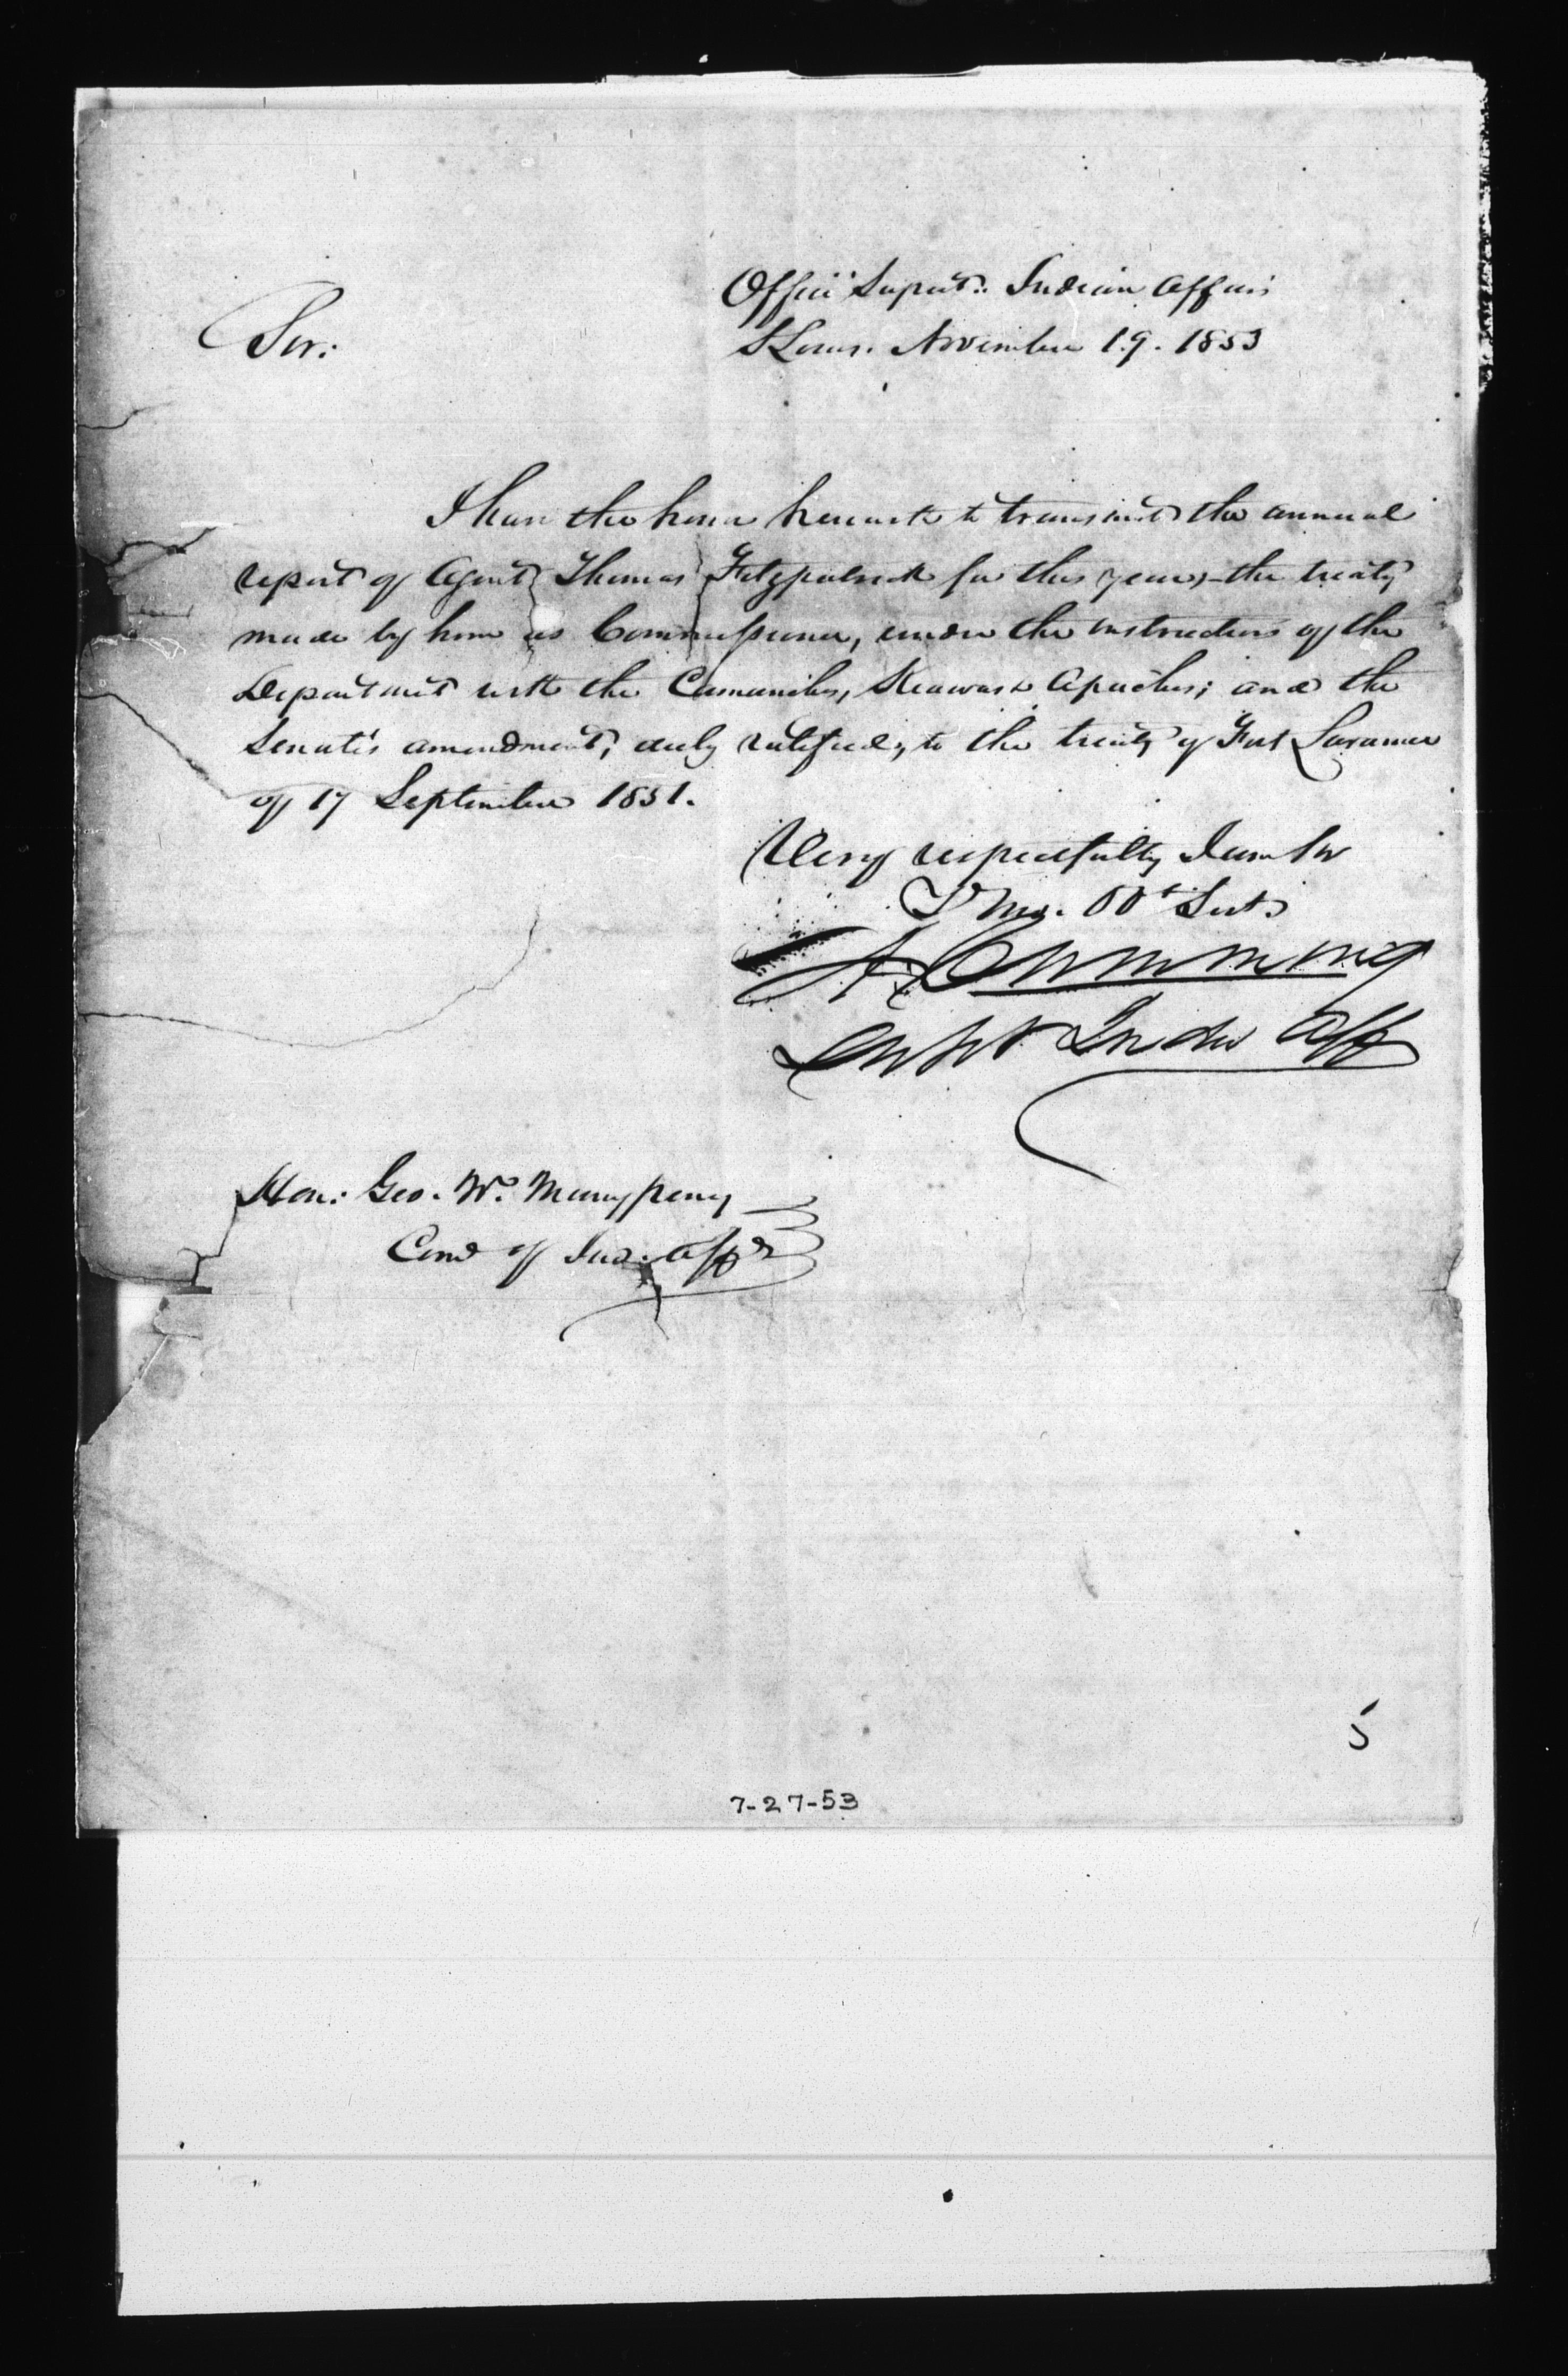 Office Supert. Indian Affairs
St Louis. November 19. 1853
Sir:
I have the honor herewith to transmit the annual
report of Agent Thomas Fitzpatrick for this year, - the treaty
made by him as Commissioner, under the instructions of the
Department with the Camanches, Keawas & Apaches; and the
Senate's amendment, duly ratified, to the treaty of Fort Laramie
of 17 September 1851.
Very respectfully I am Sir
Yr. Mo. Obt Svt.
A. Cumming
Supt Indn Aff
Hon: Geo. W. Manypenny
Comr of Ind. Affrs
5
7-27-53